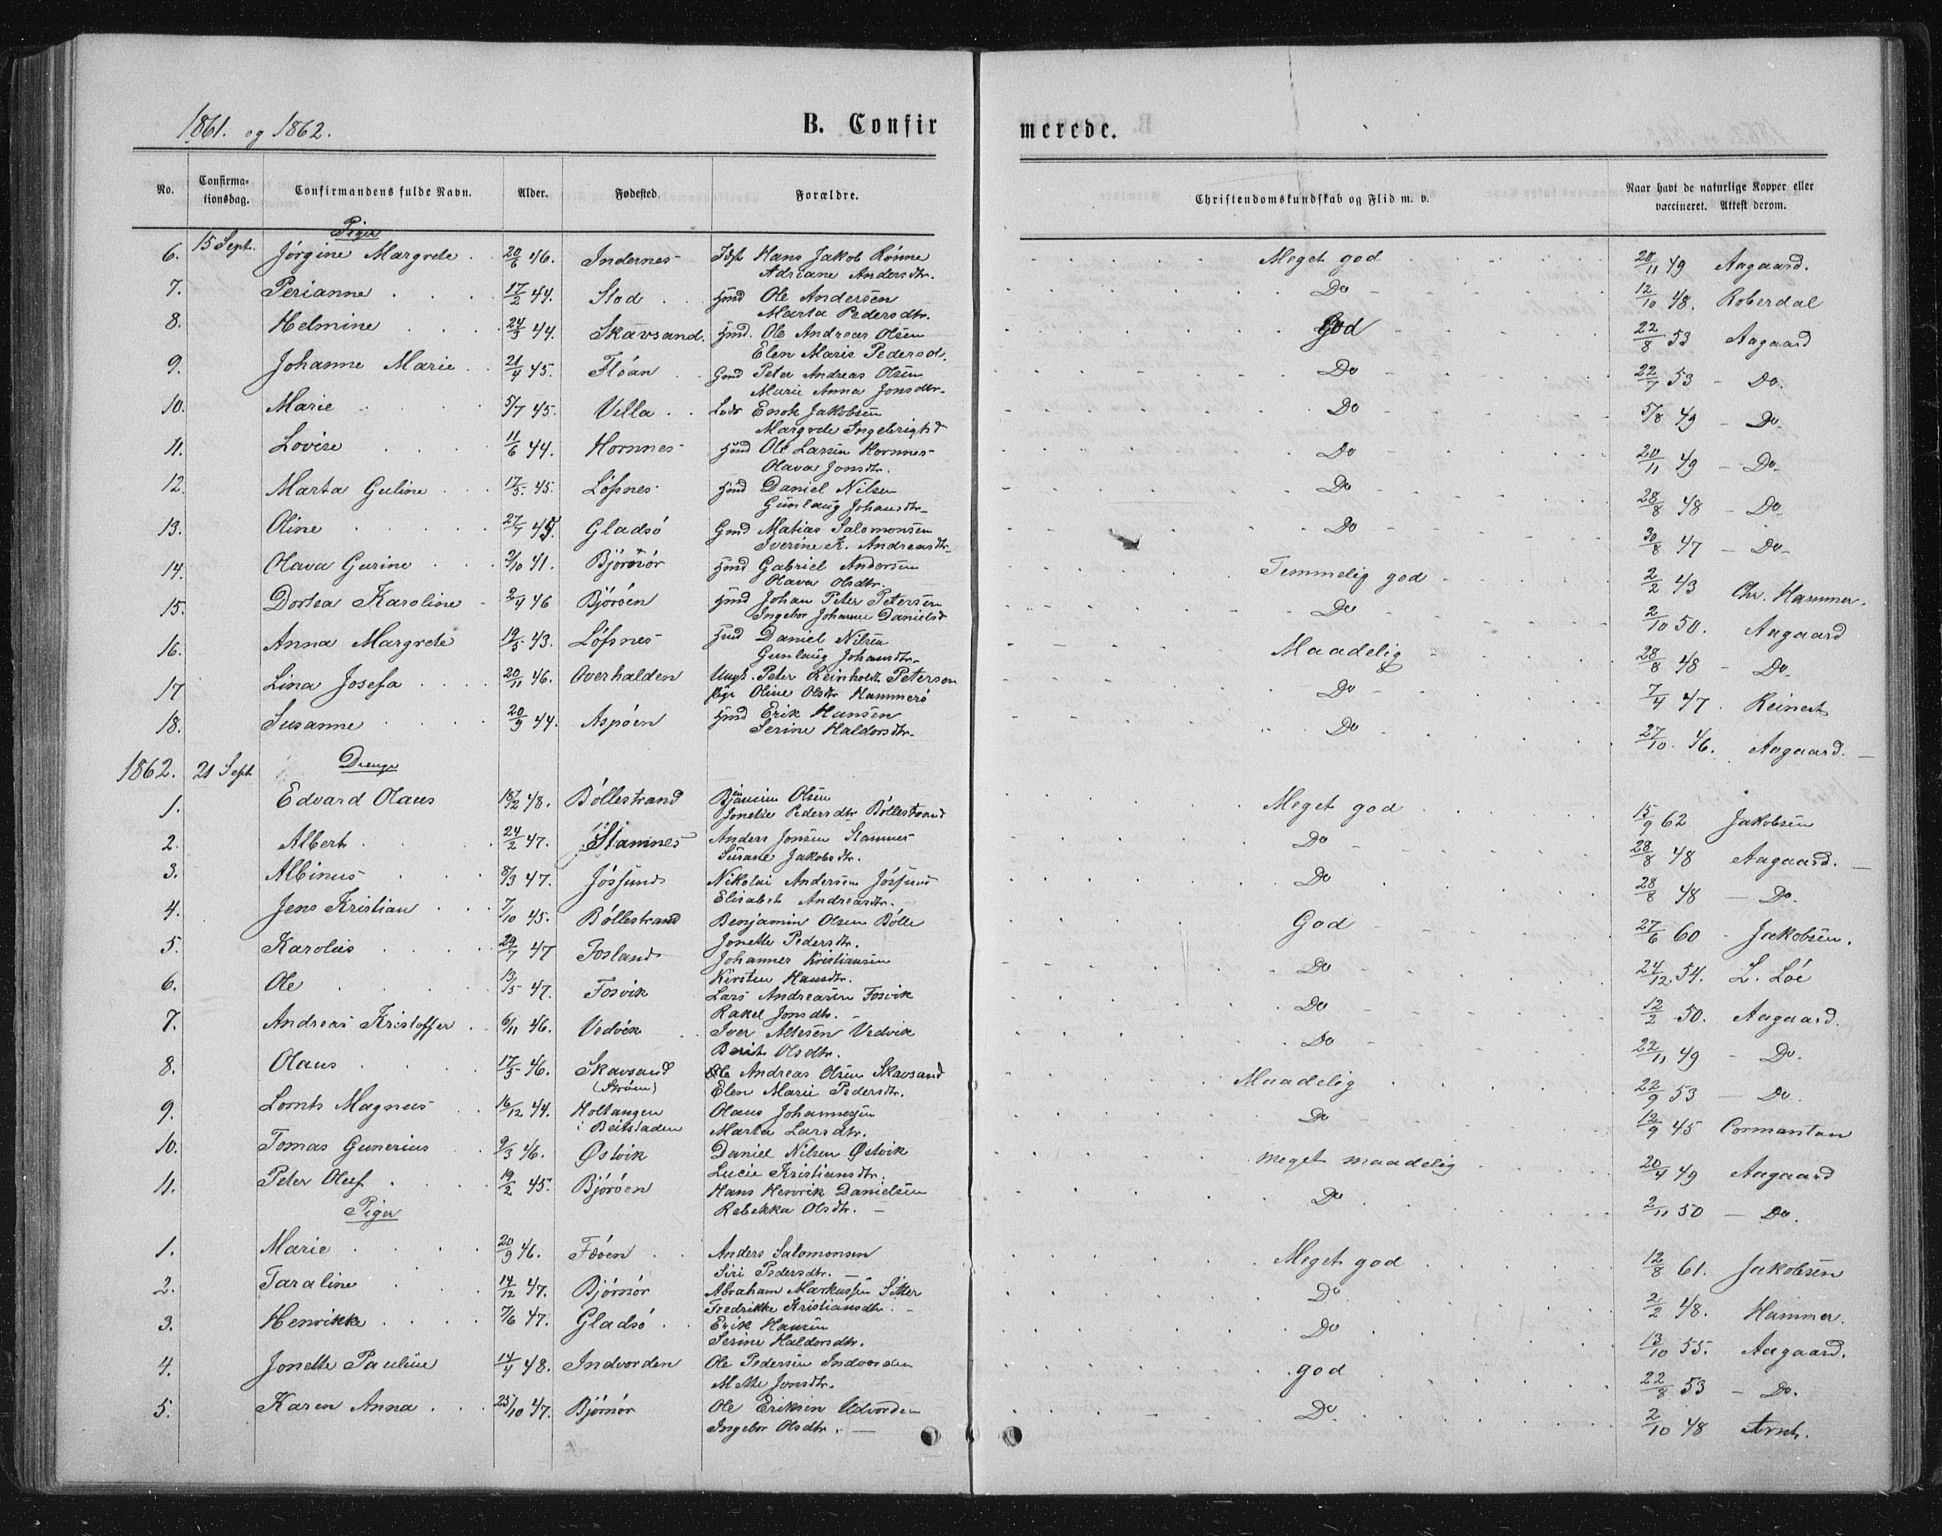 1861. og 1862.
B. Confirmerede.
No. Confirmationsdag. Confirmandens fulde Navn. Alder. Fødested. Forældre. Christendomskundskab og Flid m. v. Naar havt de naturlige Kopper eller vaccineret. Attest derom.
15 Sept. Piger
6. Jørgine Margrete 20/6 46. Indernes Hans Jakob Rønne Meget god 20/11 49 Aagaard.
Adriane Andersdtr.
7. Perianne 17/2 44. Stod Hmd Ole Andersen Do 12/10 48. Roberdal
Marta Pedersdtr.
8. Helmine 24/3 44. Skavsand. Hmd. Ole Andreas Olsen God 22/8 53 Aagaard
Elen Marie Pedersd.
9. Johanne Marie 21/4 45. Flóan Gmd Peter Andreas Olsen Do 22/7 53 - Do.
Marie Anna Jonsdtr.
10. Marie 5/7 45. Villa Enok Jakobsen Do 5/8 49 - Do.
Margrete Ingebrigtsd
11. Lovise 11/6 44. Hornnes Hmd Ole Larsen Hornnes Do 20/11 49 - Do.
Olava Jonsdtr.
12. Marta Guline 17/5 45. Løfsnes Hmd Daniel Nilsen Do 28/8 48 - Do.
Gunlaug Johansdtr.
13. Oline 27/7 45 Gladsø Gmd Matias Salomonsen Do 30/8 47 - Do.
Iverine K. Andreasdtr.
14. Olava Gurine 2/10 41. Bjørnør Hmd Gabriel Andersen Temmelig god 2/2 43 Chr. Hammer.
Olava Olsdtr.
15. Dortea Karoline 2/4 46 Bjørøen Hmd Johan Peter Petersen Do 2/10 50. Aagaard
Ingebor Johanne Danielsd
16. Anna Margrete 19/5 43. Løfsnes Hmd Daniel Nilsen Maadelig 28/8 48 - Do.
Gunlaug Johansdtr.
17 Lina Josefa 20/11 46. Overhalden Ungk. Peter Reinholdt Peterson Do 7/4 47. Reinert
Pige Oline Olsdtr Hammerø
18. Susanne 20/9 44. Aspøen Hmd Erik Hansen Do 27/10 46. Aagaard.
Serine Haldorsdtr.
1862. 21 Sept Drenge
1. Edvard Olaus 18/12 48. Bøllestrand Bjenjamin Olsen Meget god 15/9 62 Jakobsen
Jonetie Pedersdtr Bøllestrand
2. Albert 24/2 47. Stamnes Anders Jonsen Stamnes Do 28/8 48 Aagaard.
Susane Jakobsdtr.
3. Albinus 8/3 47. Jøssund Nikolai Andersen Jøssund Do 28/8 48 - Do.
Elisabet Andreasdtr.
4. Jens Kristian 7/10 45. Bøllestrand Benjamin Olsen Bølle God 27/6 60 Jakobsen.
Jonette Pedersdtr.
5. Karolus 29/7 47 Fosland Johannes Kristiansen Do 24/12 54. L. Løe
Kirsten Hansdtr.
6. Ole 13/5 47. Fosvik Lars Andreassen Fosvik Do 12/2 50. Aagaard.
Rakel Jonsdtr.
7. Andreas Kristoffer 6/11 46. Vedvik Iver Altesen Vedvik Do 22/11 49 - Do.
Berit Olsdtr.
8. Olaus 17/5 46. Skavsand Ole Andreas Olsen Skavsand Maadelig 22/9 53 - Do.
(Strøm) Elen Marie Pedersdtr.
9. Lornts Magnus 16/12 44. Holtangen Olaus Johannesen Do 12/9 45 Cormantan
i Beitstaden Marta Larsdtr.
10. Tomas Gunerius 9/3 46. Østvik Daniel Nilsen Østvik meget maadelig 20/4 49 Aagaard
Lucie Kristiansdtr.
11. Peter Oluf 19/2 45. Bjørøen Hans Henrik Danielsen Do 2/11 50 - Do.
Piger Rebekka Olsdtr.
1. Marie 20/9 46. Fæøen Anders Salomonsen Meget god 12/8 61. Jakobsen
Siri Pedersdtr.
2. Taraline 14/12 47. Bjørnør Abraham Markussen Sitter Do 2/2 48. Hammer.
Fredrikke Kristiansdtr.
3. Henrikke 7/6 47. Gladsø Erik Hansen Do 13/10 55. Aagaard.
Serine Haldorsdtr.
4. Jonette Pauline 14/4 48. Indvorden Ole Pedersen Indvorden god 22/8 53 - Do.
Mette Jonsdtr.
5. Karen Anna 25/10 47. Bjørnør Ole Eriksen Udvorden Do 2/10 48 Arnt.
Ingebor Olsdtr.